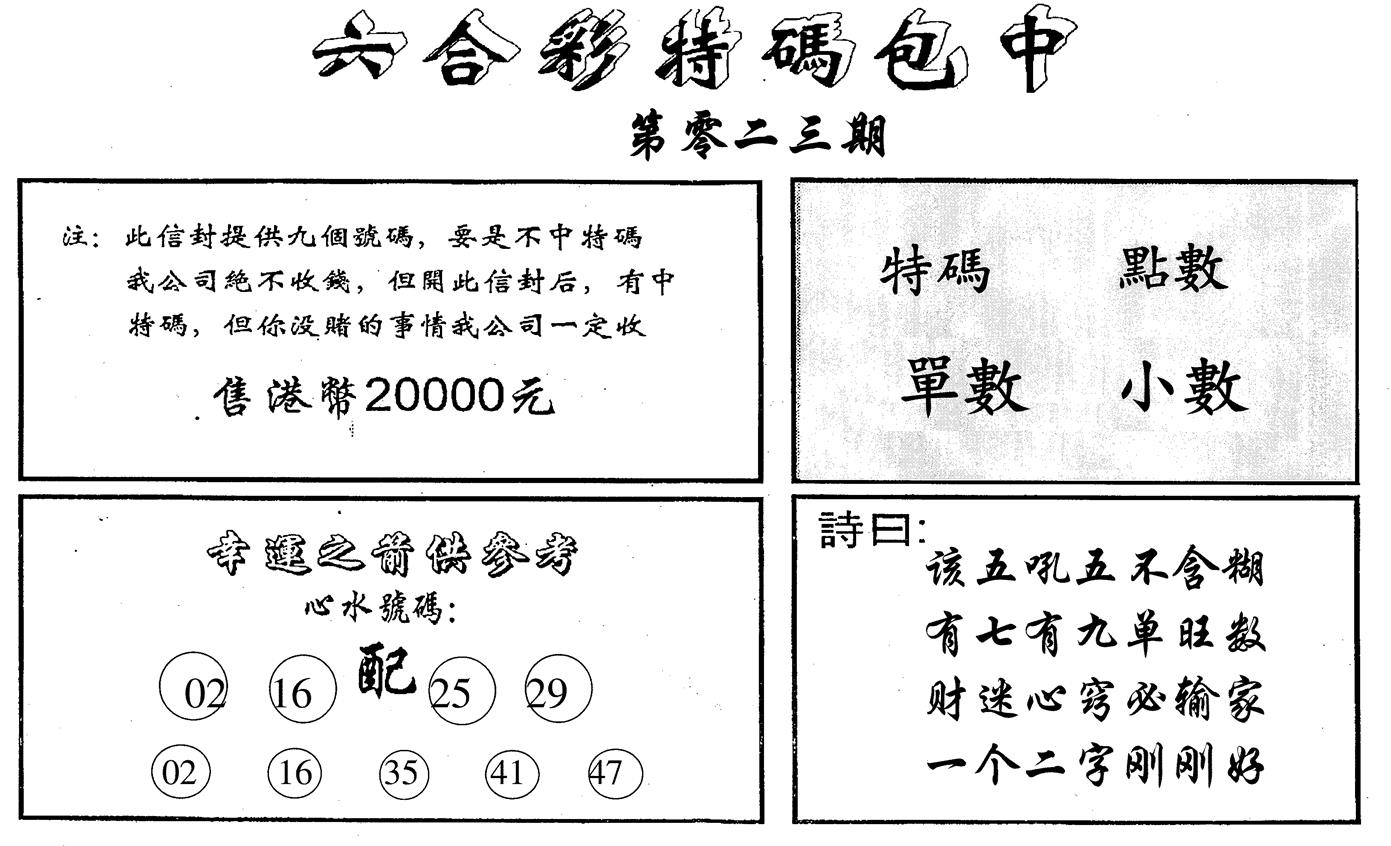 六合彩特碼包中
第零二三期
注：此信封提供九個號碼，要是不中特碼
我公司絕不收錢，但開此信封后，有中
特碼，但你没賭的事情我公司一定收
售港幣20000元
特碼 點數
單數 小數
幸運之箭供參考
心水號碼：
02 16 配 25 29
02 16 35 41 47
詩曰：
该五吼五不含糊
有七有九单旺数
财迷心窍必输家
一个二字刚刚好